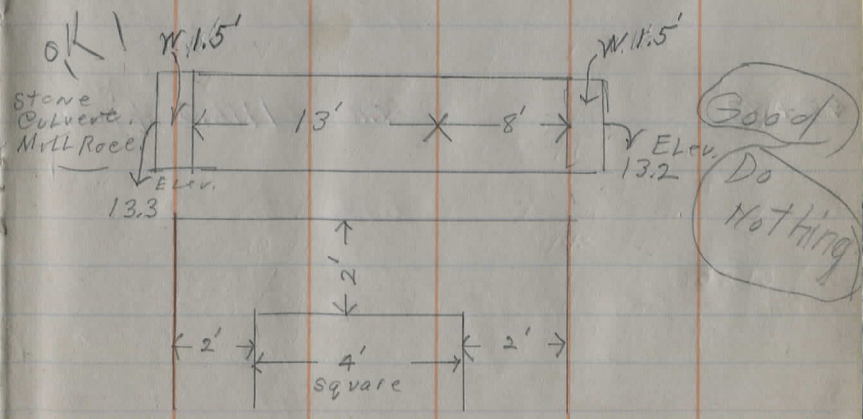 OK!
W. 1.5'
W. 1.5'
Stone
Culvert.
Mill Race
13'
8'
Good
Elev.
13.3
Elev.
13.2
Do
Nothing
2'
2'
4'
Square
2'